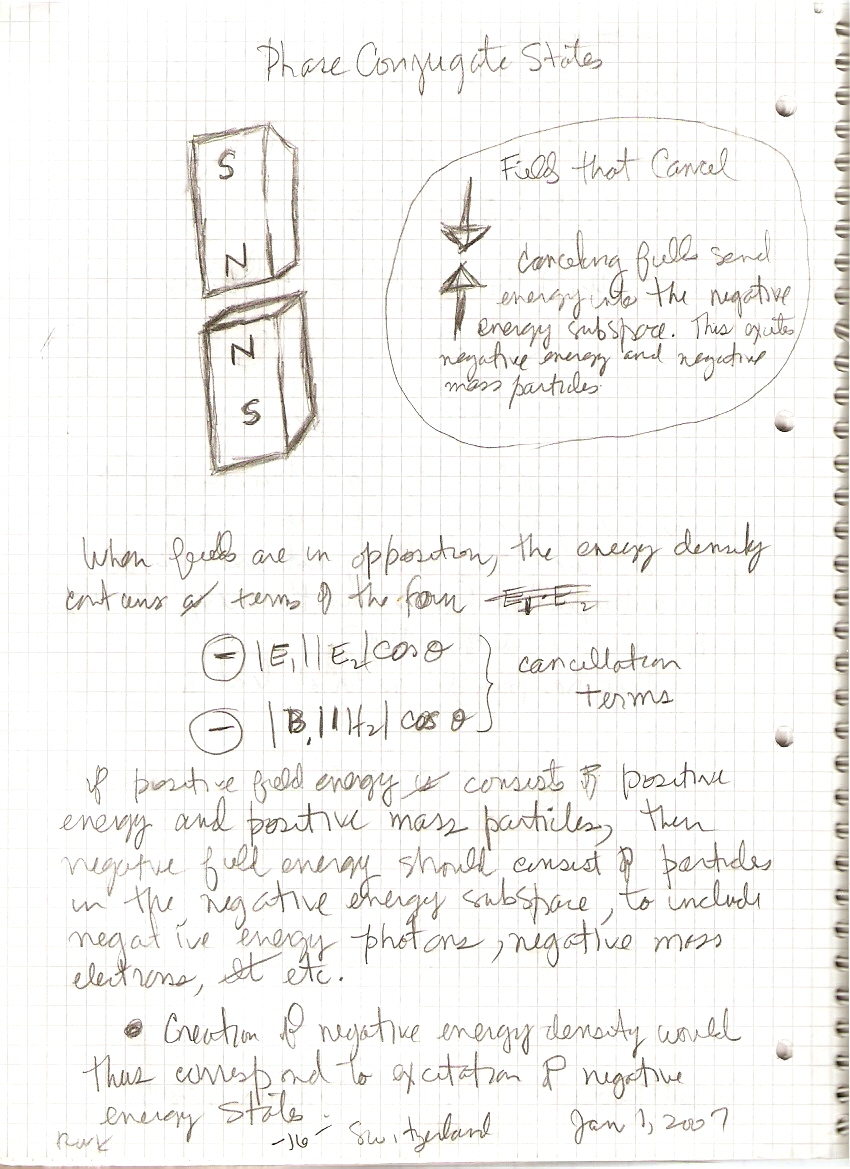 Phase Conjugate States
S
N
N
S
Fields that Cancel
Canceling fields send
energy into the negative
energy subspace. This excites
negative energy and negative
mass particles
When fields are in opposition, the energy density
contains terms of the form E₁·E₂
⊖ |E₁||E₂| cos θ
⊖ |B₁||H₂| cos θ
cancellation
terms
If positive field energy consists of positive
energy and positive mass particles, then
negative field energy should consist of particles
in the negative energy subspace, to include
negative energy photons, negative mass
electrons, etc.
• Creation of negative energy density would
thus correspond to excitation of negative
energy States.
-16- Switzerland Jan 1, 2007